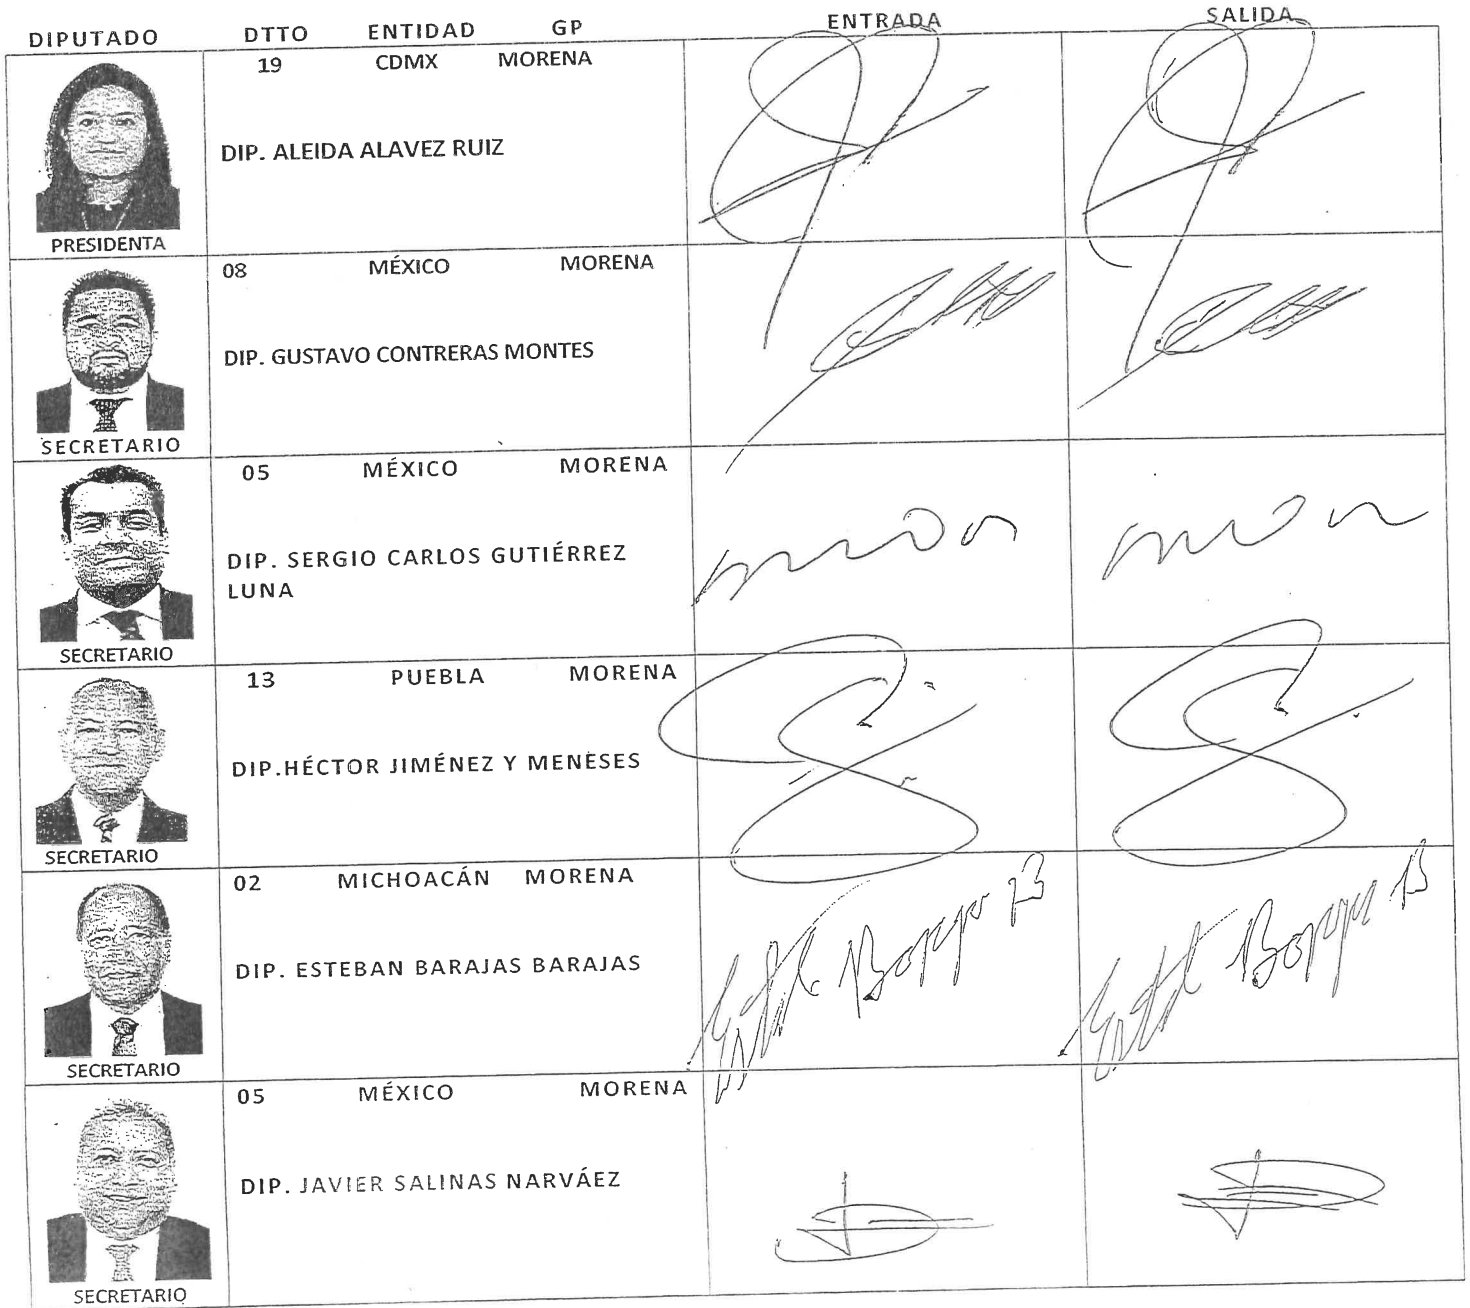 DIPUTADO DTTO ENTIDAD GP ENTRADA SALIDA
19 CDMX MORENA
DIP. ALEIDA ALAVEZ RUIZ
PRESIDENTA
08 MÉXICO MORENA
DIP. GUSTAVO CONTRERAS MONTES
SECRETARIO
05 MÉXICO MORENA
DIP. SERGIO CARLOS GUTIÉRREZ
LUNA
SECRETARIO
13 PUEBLA MORENA
DIP.HÉCTOR JIMÉNEZ Y MENESES
SECRETARIO
02 MICHOACÁN MORENA
DIP. ESTEBAN BARAJAS BARAJAS
SECRETARIO
05 MÉXICO MORENA
DIP. JAVIER SALINAS NARVÁEZ
SECRETARIO